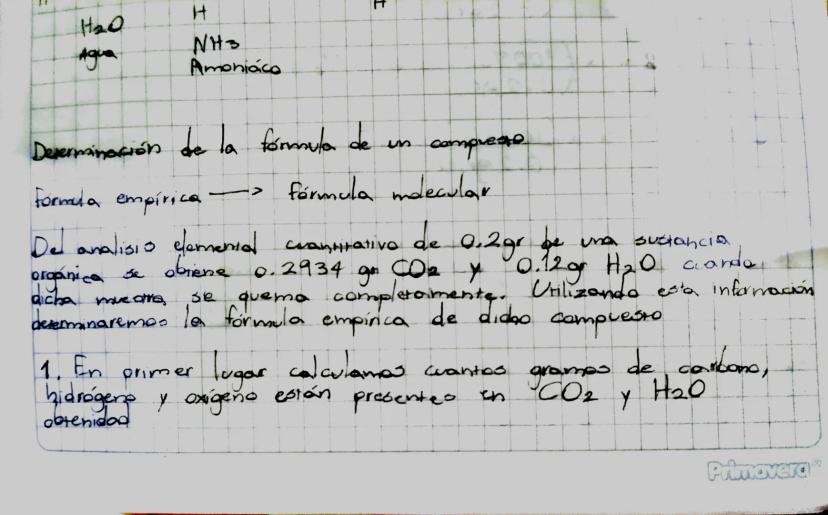 H
H
H2O
NH3
Agua
Amoniáco
Determinación de la fórmula de un compuesto
Fórmula empírica —> fórmula molecular
Del analisis elemental cuantitativo de 0.2gr de una sustancia
orgánica se obtiene 0.2934 gr CO2 y 0.12gr H2O cuando
dicha muestra, se quema completamente. Utilizando esta información
determinaremos la fórmula empírica de dicho compuesto
1. En primer lugar calculamos cuantos gramos de carbono,
hidrógeno y oxígeno están presentes en CO2 y H2O
obtenidos
Primavera